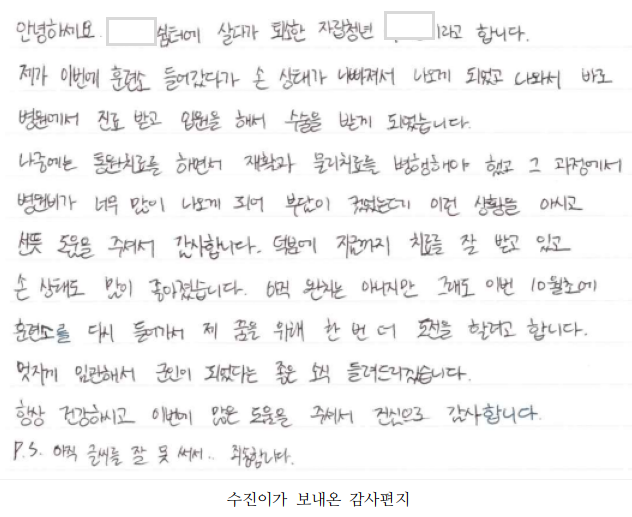 안녕하세요. 쉼터에 살다가 퇴소한 자립청년 이라고 합니다.
제가 이번에 훈련소 들어갔다가 손 상태가 나빠져서 나오게 되었고 나와서 바로
병원에서 진료 받고 입원을 해서 수술을 받게 되었습니다.
나중에는 통원치료를 하면서 재활과 물리치료를 병행해야 했고 그 과정에서
병원비가 너무 많이 나오게 되어 부담이 컸었는데 이런 상황을 아시고
선뜻 도움을 주셔서 감사합니다. 덕분에 지금까지 치료를 잘 받고 있고
손 상태도 많이 좋아졌습니다. 아직 완치는 아니지만 그래도 이번 10월초에
훈련소를 다시 들어가서 제 꿈을 위해 한 번 더 도전을 하려고 합니다.
멋지게 임관해서 군인이 되었다는 좋은 소식 들려드리겠습니다.
항상 건강하시고 이번에 많은 도움을 주셔서 진심으로 감사합니다.
P.S. 아직 글씨를 잘 못 써서.. 죄송합니다.
수진이가 보내온 감사편지